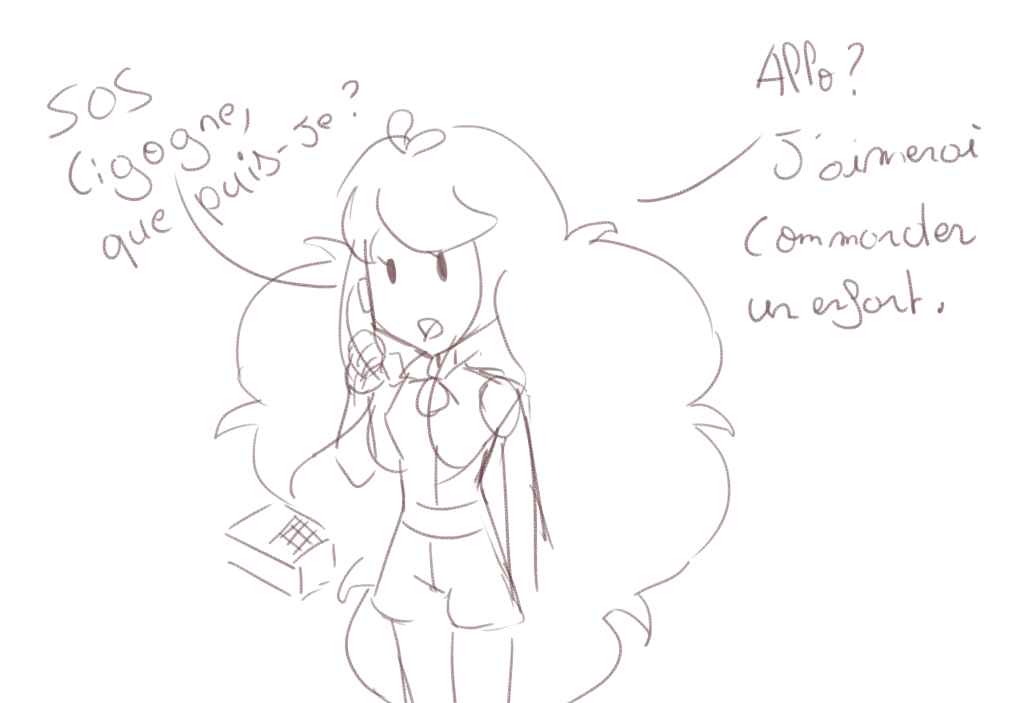 SOS
Cigogne,
que puis-je?
Allo?
J'aimerai
Commander
un enfant.